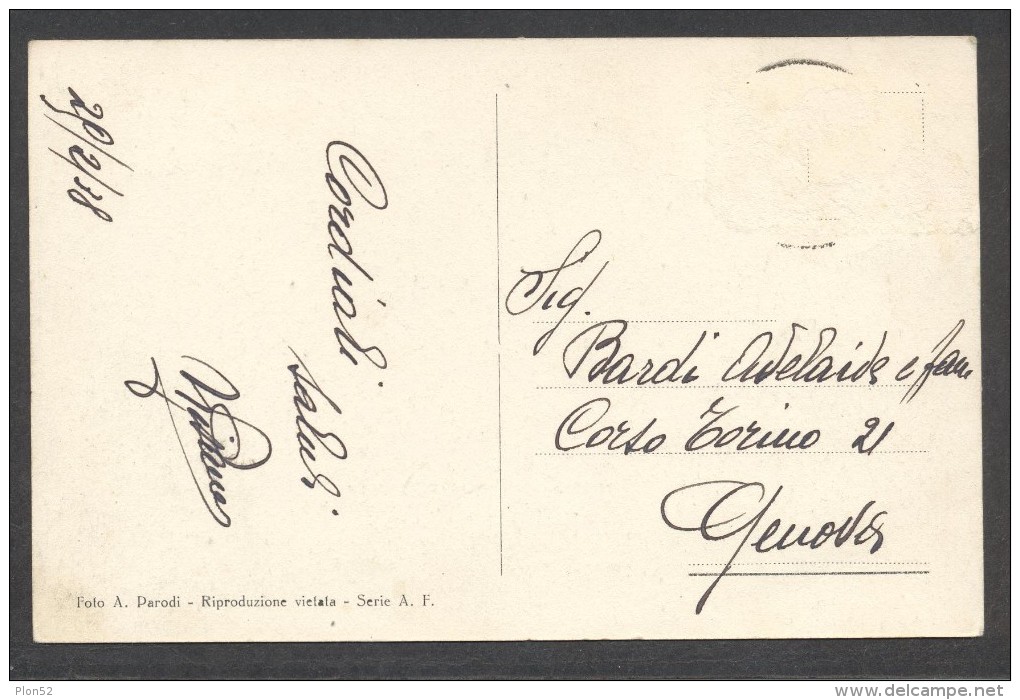 Cordiali
saluti
Sig.
Bardi Adelaide e fam
Corso Torino 21
Genova
Foto A. Parodi - Riproduzione vietata - Serie A. F.
Plon52
www.delcampe.net